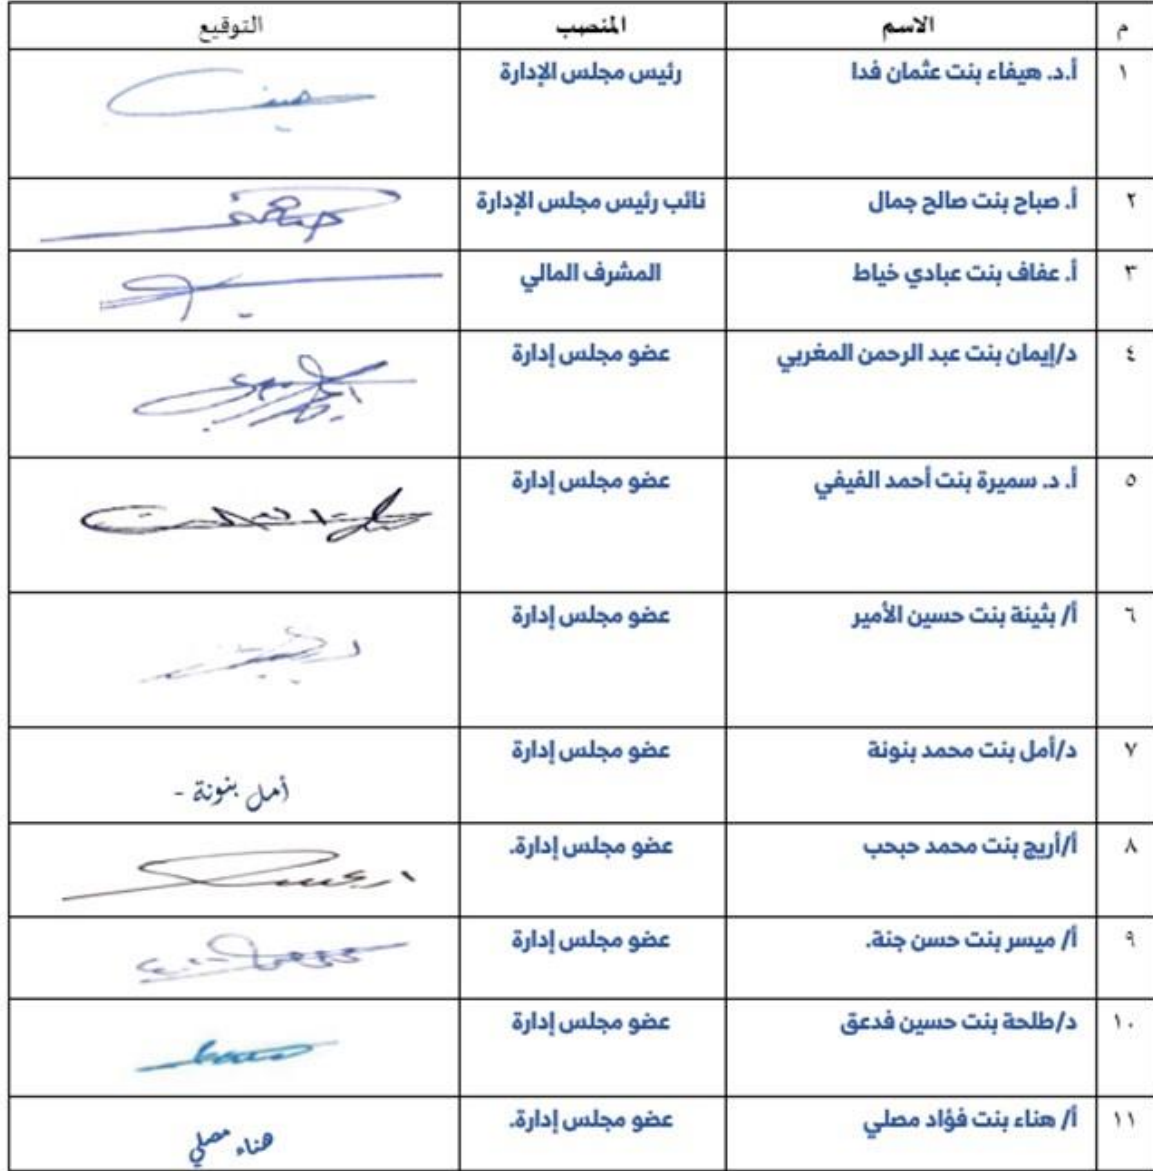 م الاسم المنصب التوقيع
١ أ.د. هيفاء بنت عثمان فدا رئيس مجلس الإدارة
٢ أ. صباح بنت صالح جمال نائب رئيس مجلس الإدارة
٣ أ. عفاف بنت عبادي خياط المشرف المالي
٤ د/إيمان بنت عبد الرحمن المغربي عضو مجلس إدارة
٥ أ. د. سميرة بنت أحمد الفيفي عضو مجلس إدارة
٦ أ/ بثينة بنت حسين الأمير عضو مجلس إدارة
٧ د/أمل بنت محمد بنونة عضو مجلس إدارة أمل بنونة -
٨ أ/أريج بنت محمد حبحب عضو مجلس إدارة.
٩ أ/ ميسر بنت حسن جنة. عضو مجلس إدارة
١٠ د/طلحة بنت حسين فدعق عضو مجلس إدارة
١١ أ/ هناء بنت فؤاد مصلي عضو مجلس إدارة. هناء مصلي